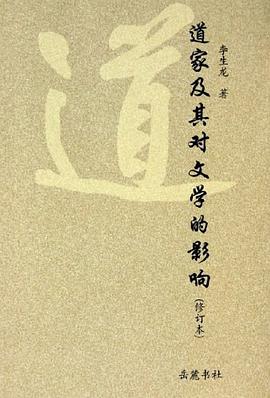 道
李生龙 著
道家及其对文学的影响(修订本)
岳麓书社